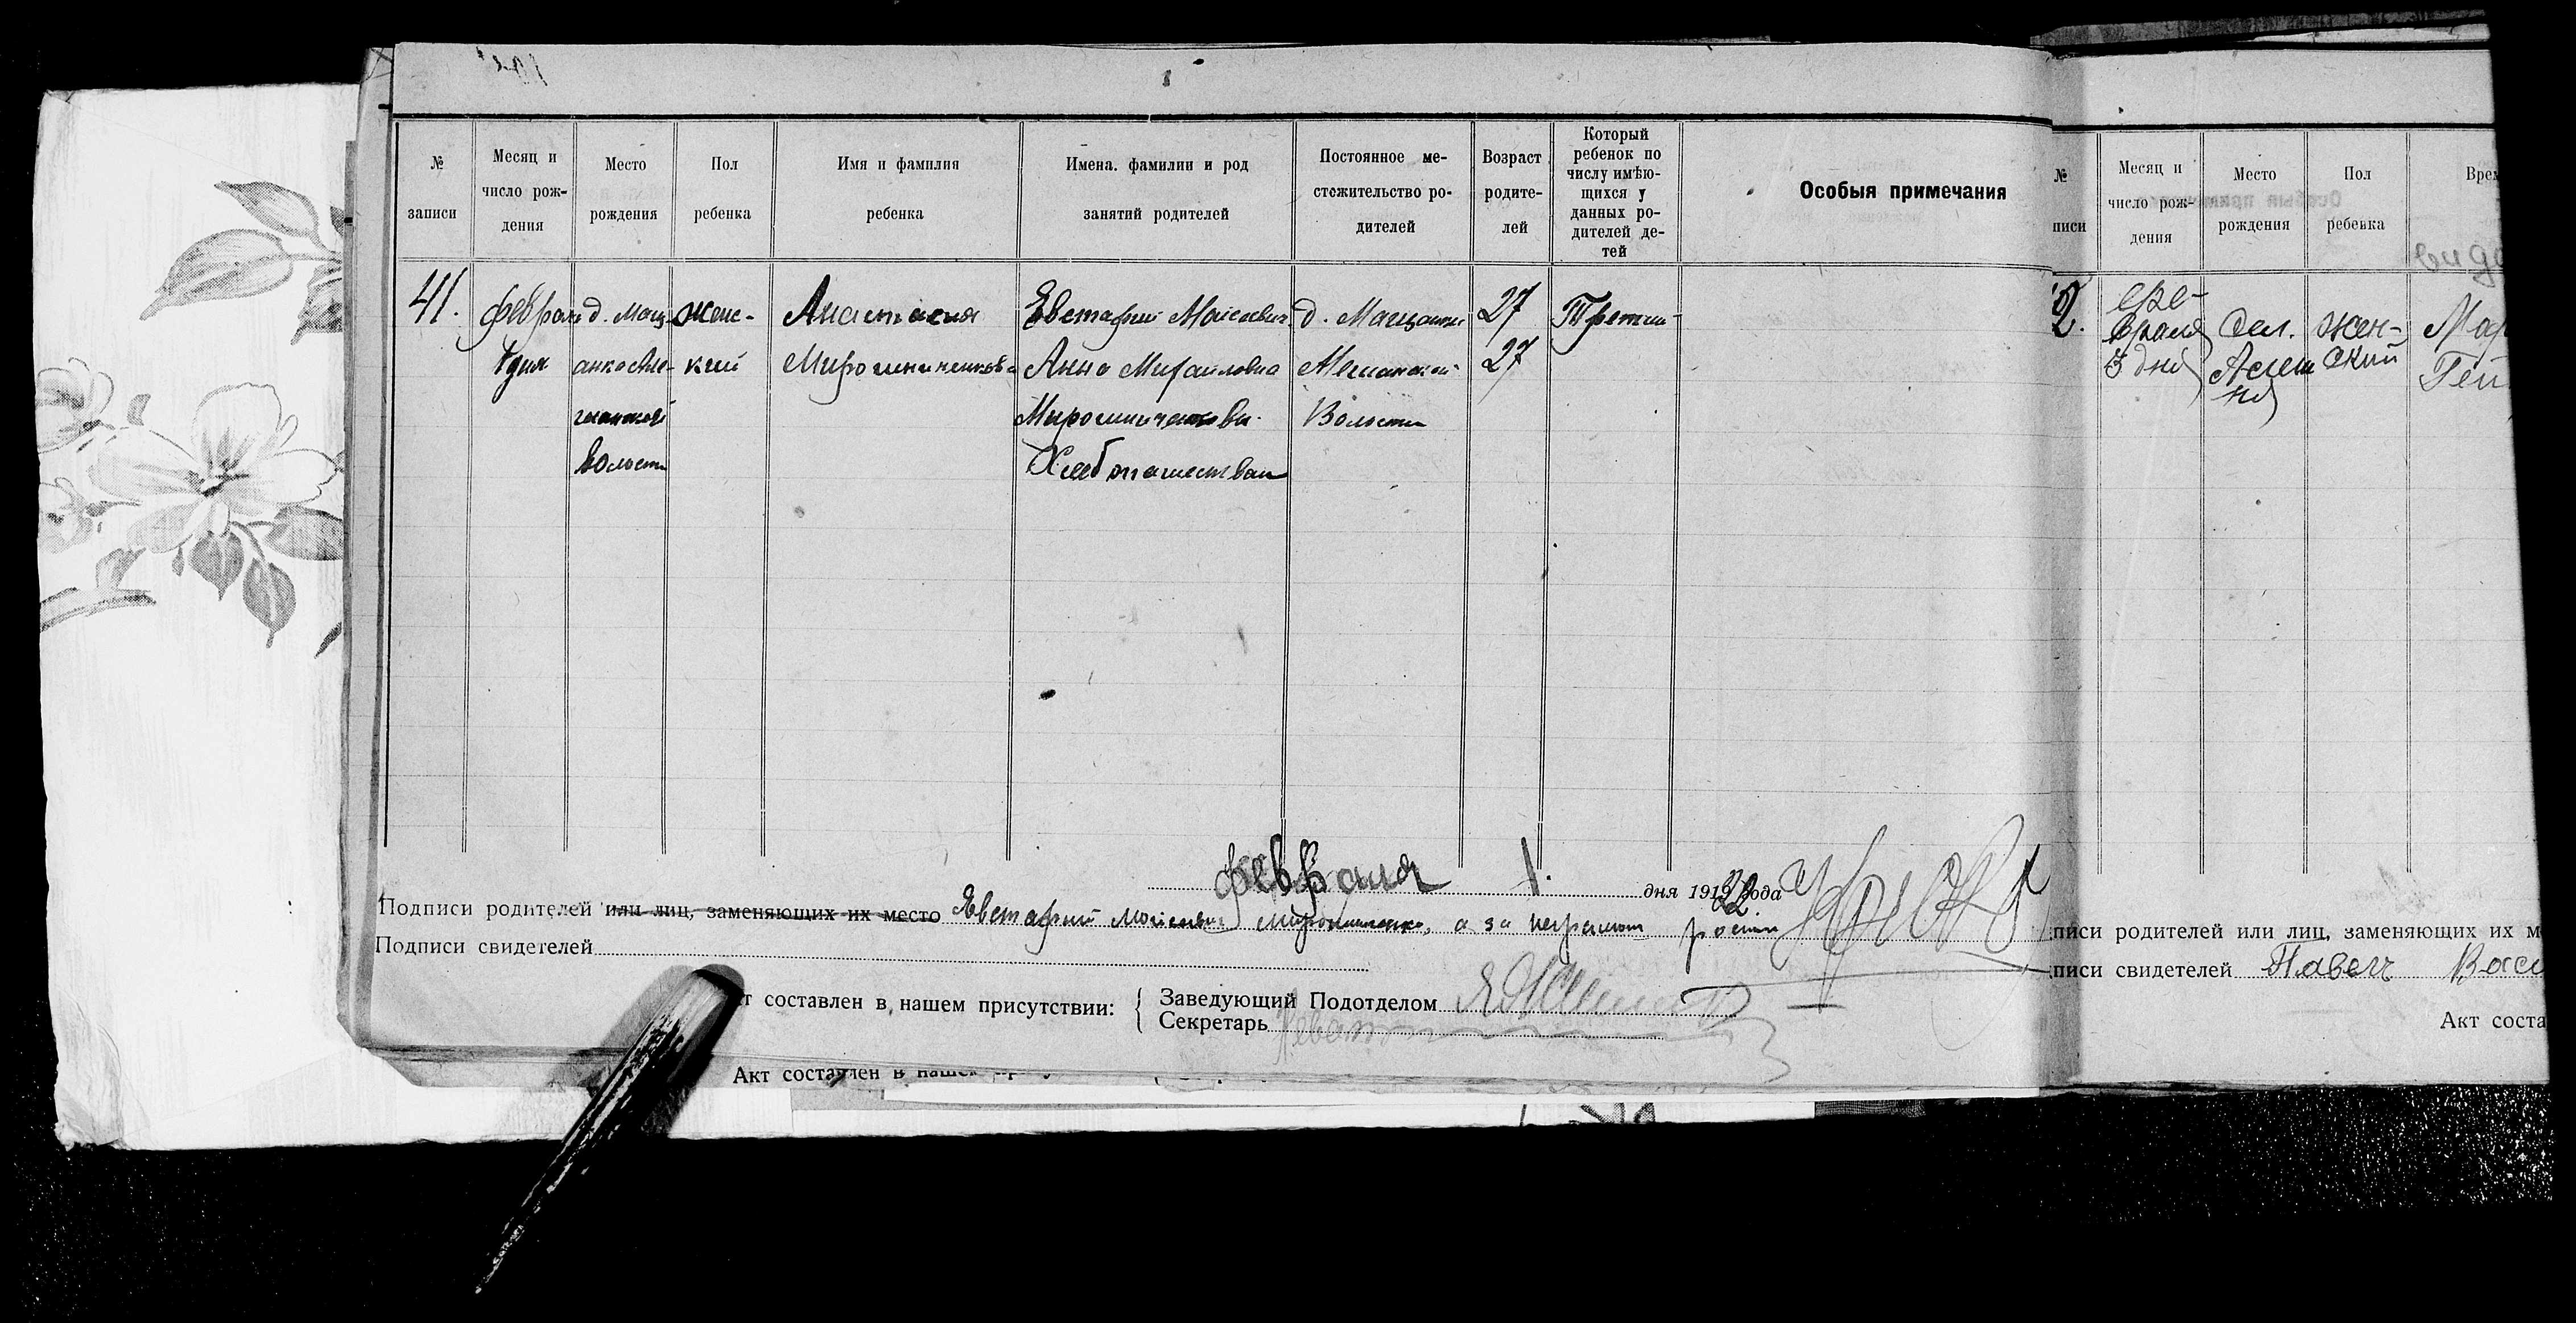 № записи
Месяц и число рож-дения
Место рождения
Пол ребенка
Имя и фамилия ребенка
Имена. фамилии и род занятий родителей
Постоянное ме-стожительство ро-дителей
Возраст родите-лей
Который ребенок по числу имѣю-щихся у данных ро-дителей де-тей
Особыя примечания
41.
феврал 1 дня
д. Мащ-
волости
женс-кий
Анастасия
Евстафий Моисеевич
Анна Михайловна
Хлебопашеством
д. Мащанки
Волости
27
27
Третий
февраля 1. дня 1919 22 года
Подписи родителей или лиц, заменяющих их место Евстафий Моисеевич Мирошниченко, а за неграмот
Подписи свидетелей
т составлен в нашем присутствии:
Заведующий Подотделом
Секретарь
Акт составлен в нашем
№ писи
Месяц и число рож-дения
Место рождения
Пол ребенка
Врем
2.
фе-враля 3 дня
Сел.
жен-ский
Мар
писи родителей или лиц, заменяющих их м
писи свидетелей Павел
Акт соста